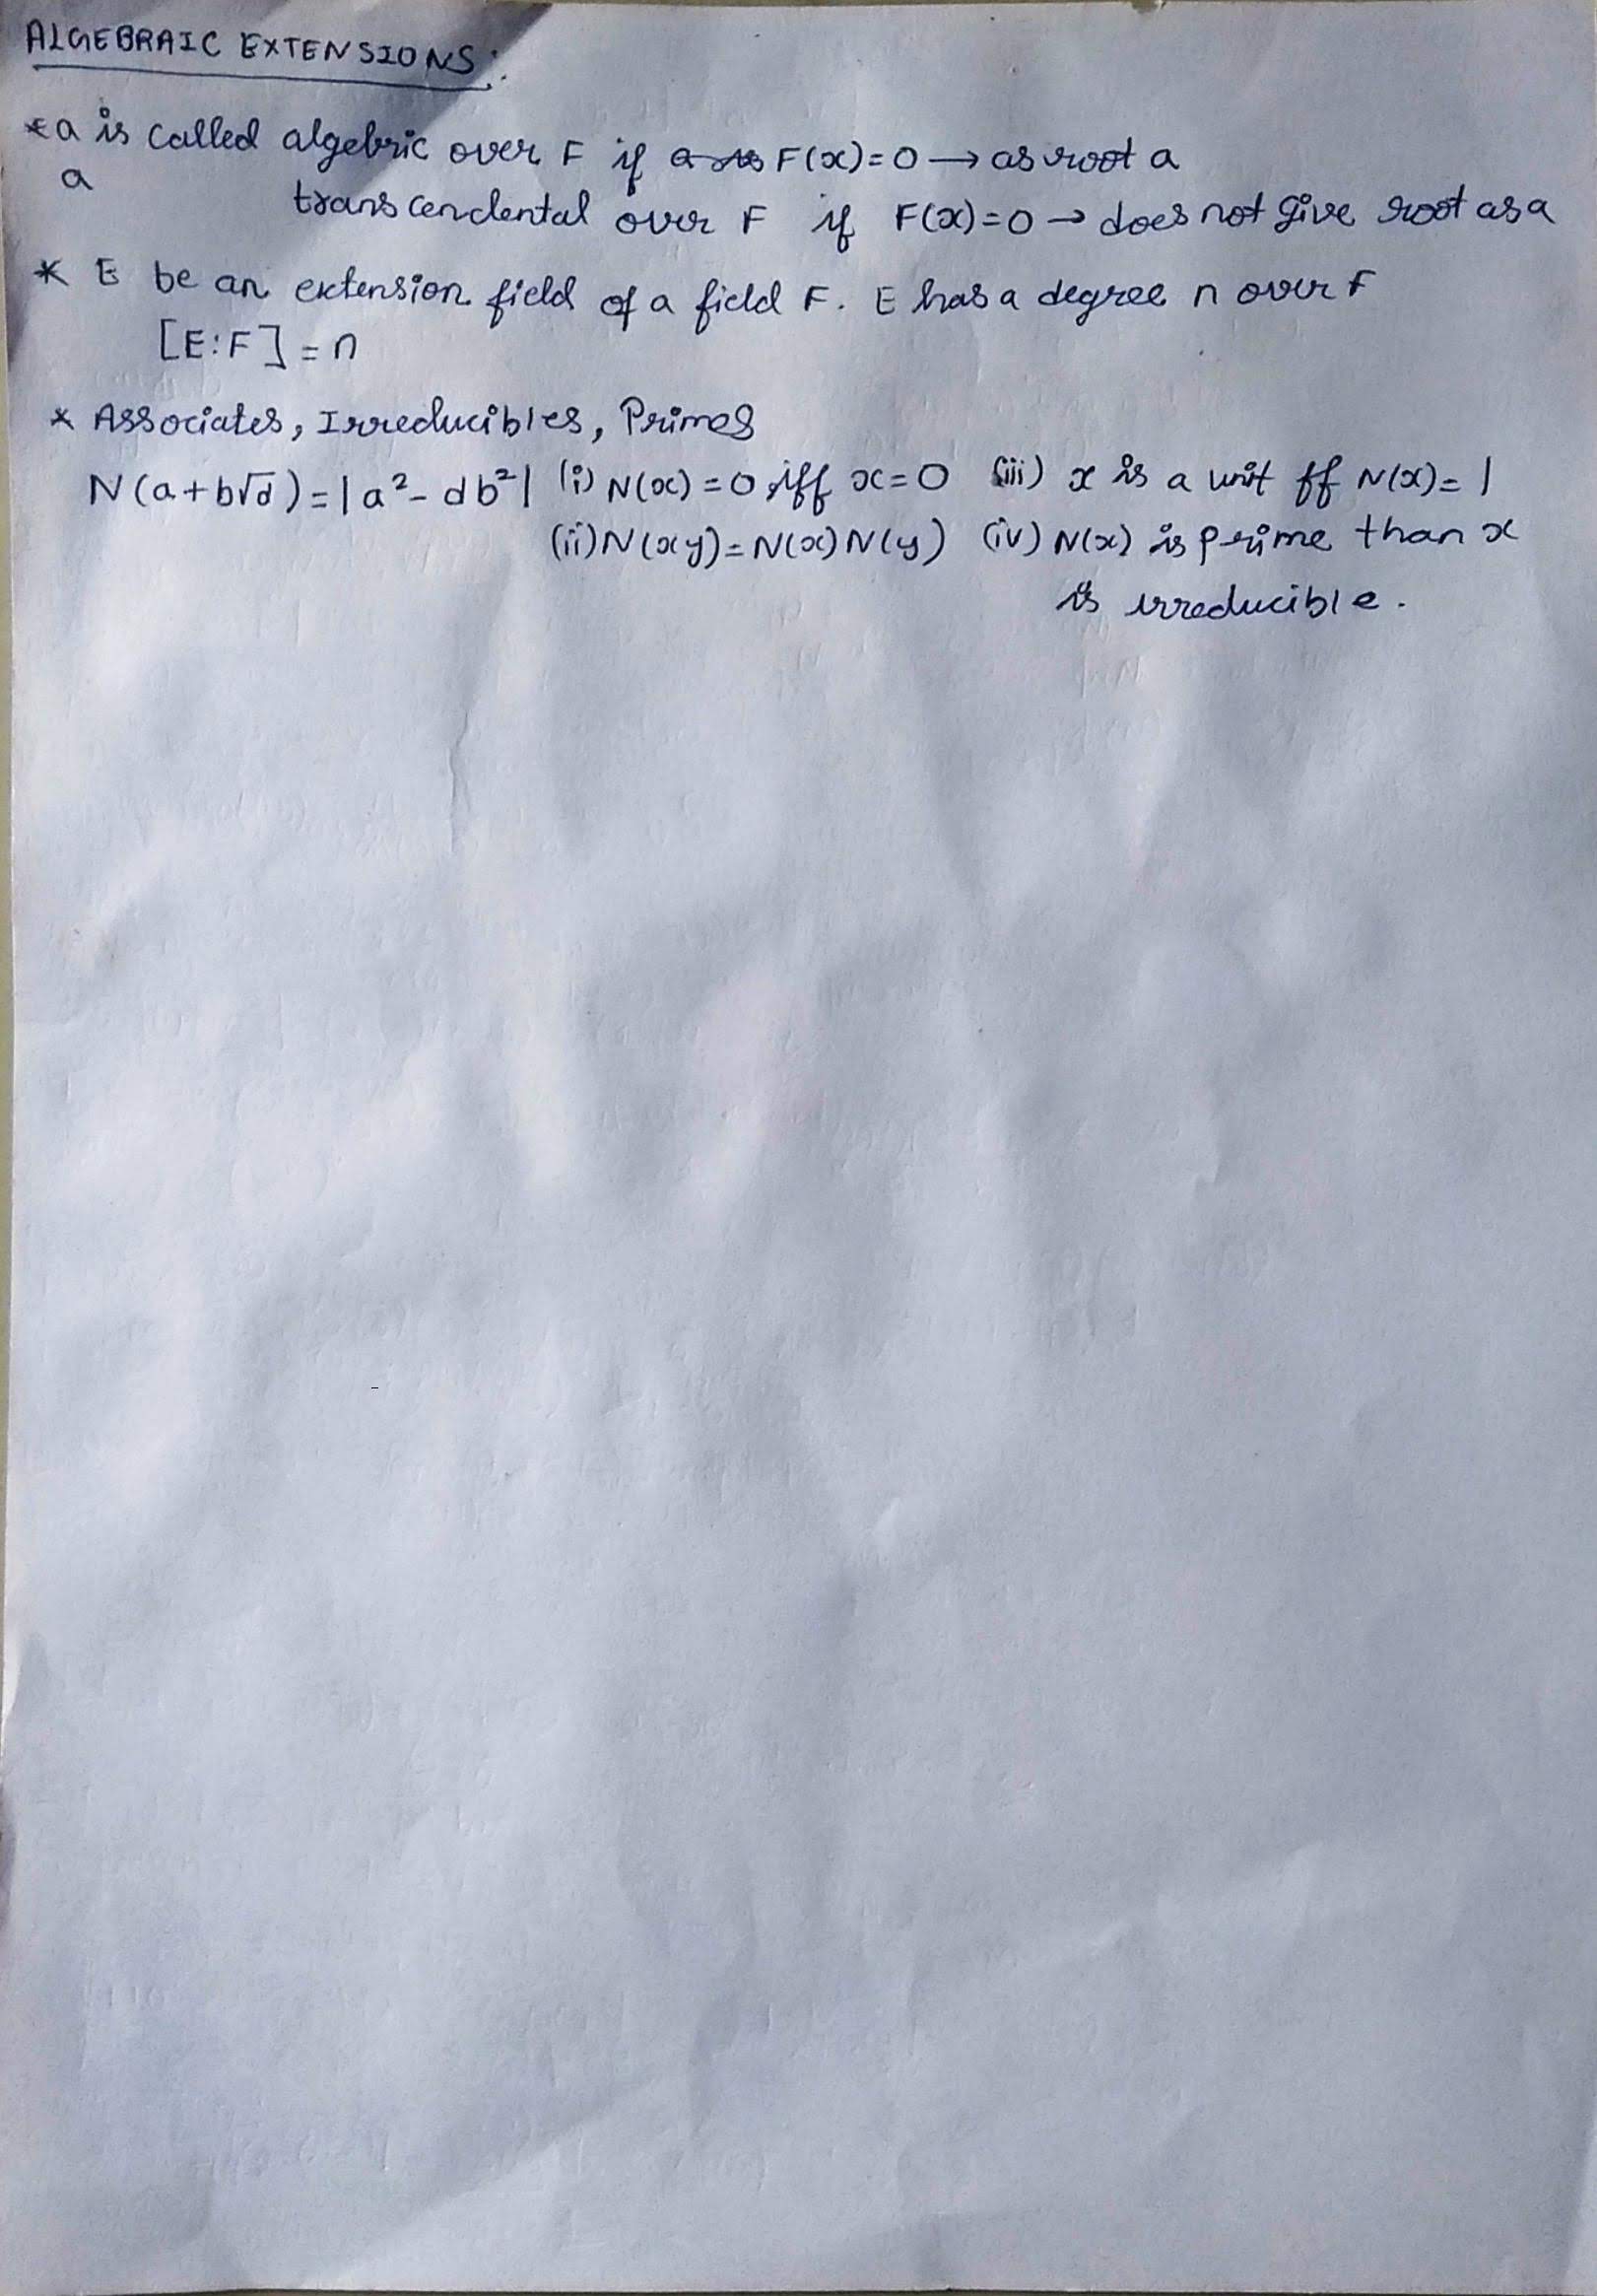 ALGEBRAIC EXTENSIONS:
* a is called algebric over F if F(x)=0 → as root a
a transcendental over F if F(x)=0 → does not give root as a
* E be an extension field of a field F. E has a degree n over F
[E:F] = n
* Associates, Irreducibles, Primes
N(a+b√d)=|a²-db²| (i) N(x)=0 iff x=0 (iii) x is a unit ff N(x)=1
(ii) N(xy)=N(x)N(y) (iv) N(x) is prime than x
is irreducible.